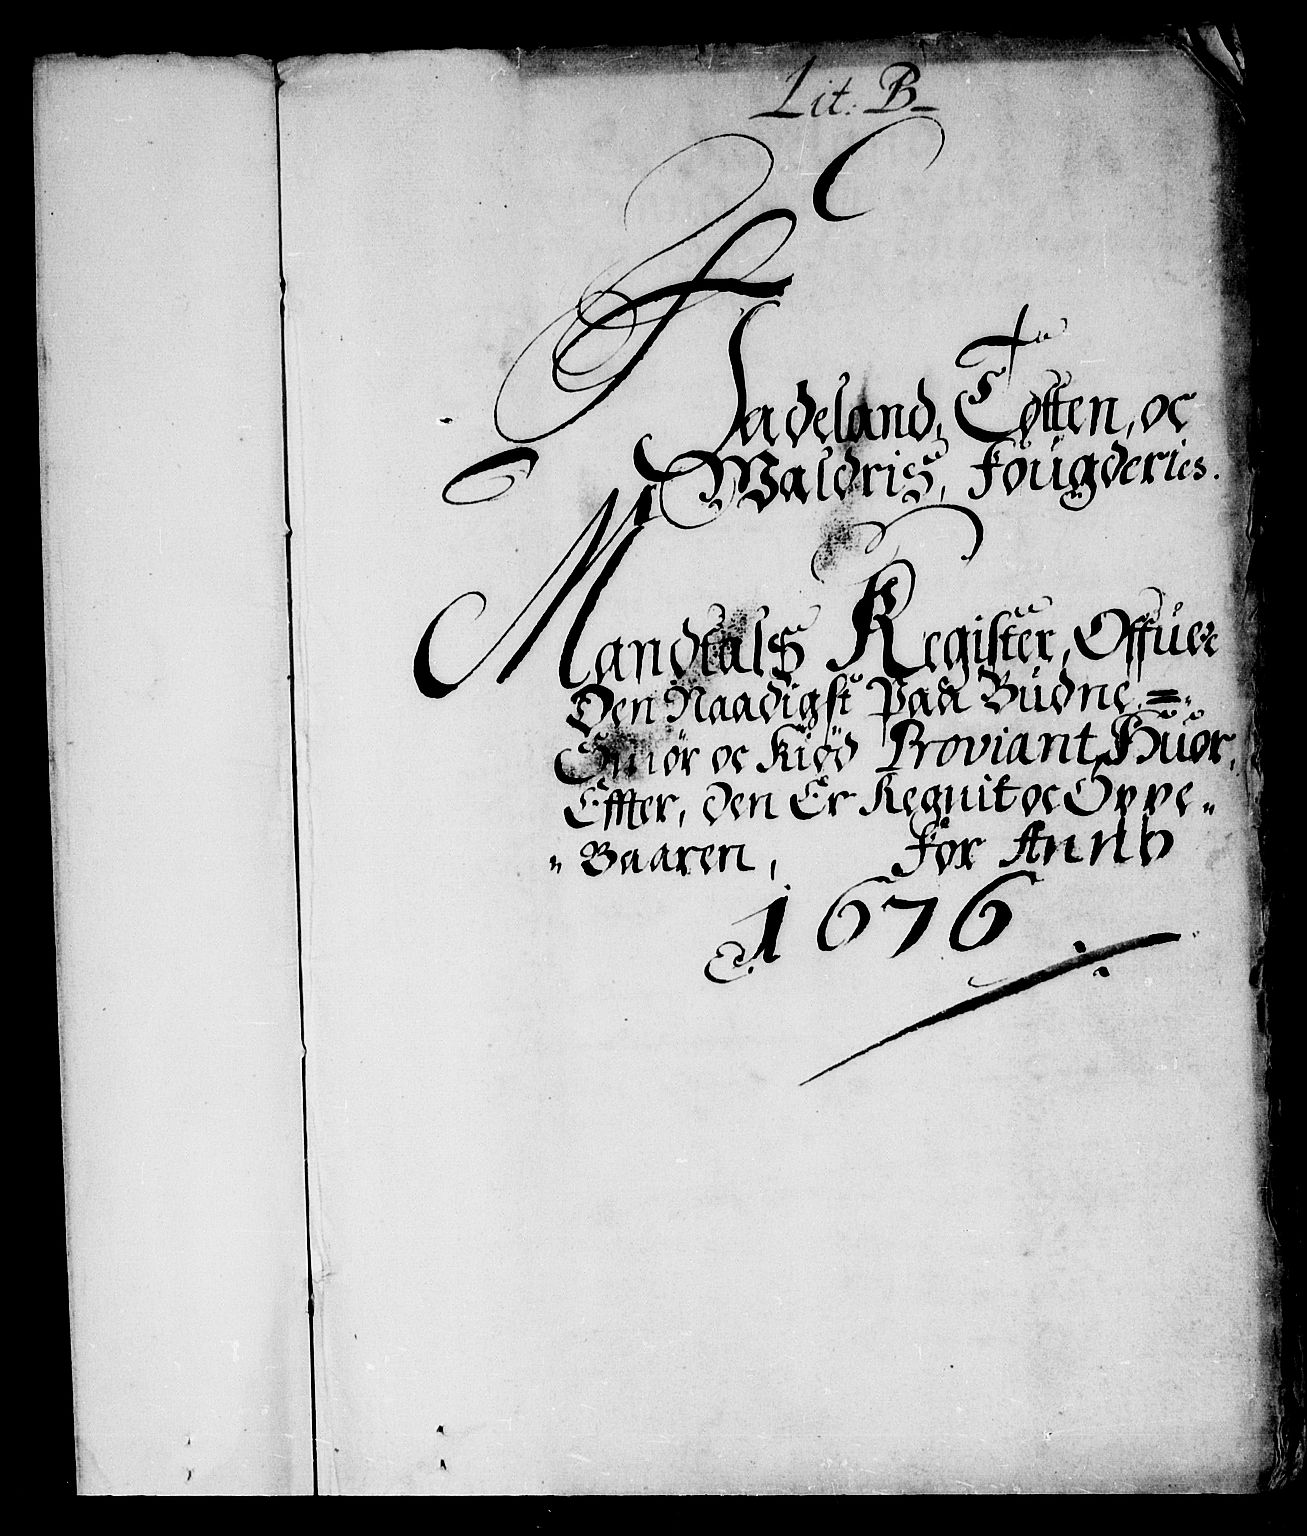 Lit. B
Hadeland, Totten, oc
Waldris, Fougderies.
Mandtals Register, Offuer
Den Naadigst Paa Budne =
Smör oc Kiöd Proviant, Huor,
Effter, den Er Reguit oc Oppe„
„Baaren, For Anno
1676